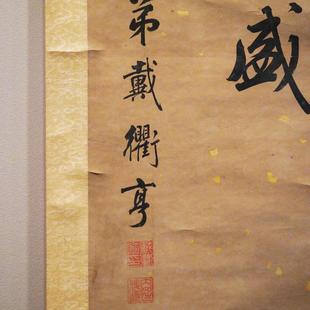 盛
弟戴衢亨